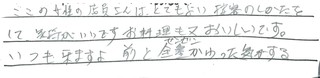 ここのお店の店員さんは、とてもよい接客のしかたを
して気持がいいですお料理も又おいしいです。
いつも来ますよ 前と全然かゆった気がする